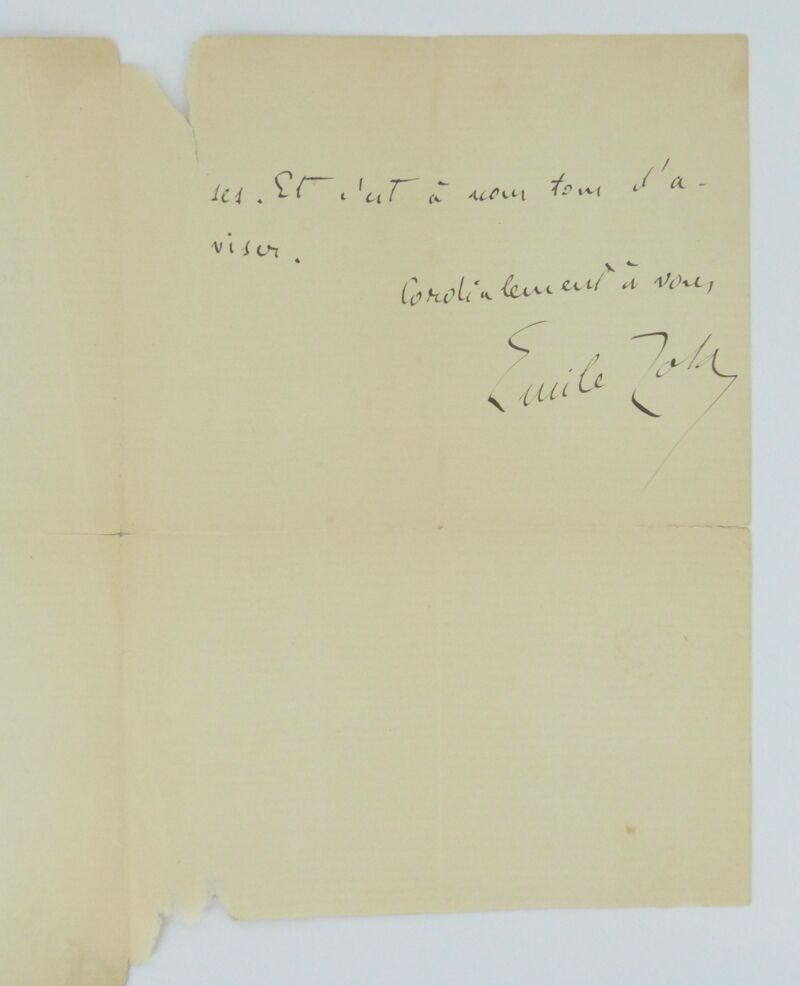 ses. Et c'est à nous tous d'a-
viser.
Cordialement à vous,
Emile Zola